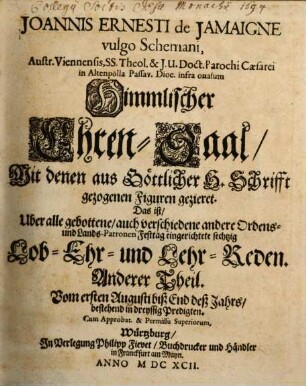 Collegij Soctis Jesu Monachij 1697
JOANNIS ERNESTI de JAMAIGNE
vulgo Schemani,
Austr. Viennensis, SS. Theol. & J. U. Doct. Parochi Cæsarei
in Altenpölla Passav. Diœc. infra onasum
Himmlischer
Ehren-Saal/
Mit denen aus Göttlicher H. Schrifft
gezogenen Figuren gezieret.
Das ist/
Uber alle gebottene/ auch verschiedene andere Ordens-
und Lands-Patronen Festtäg eingerichtete sechzig
Lob-Ehr- und Lehr-Reden.
Anderer Theil.
Vom ersten Augusti biß End deß Jahrs/
bestehend in dreyssig Predigten.
Cum Approbat. & Permissu Superiorum,
Würzburg/
In Verlegung Philipp Fievet/ Buchdrucker und Händler
in Franckfurt am Mayn.
ANNO M DC XCII.